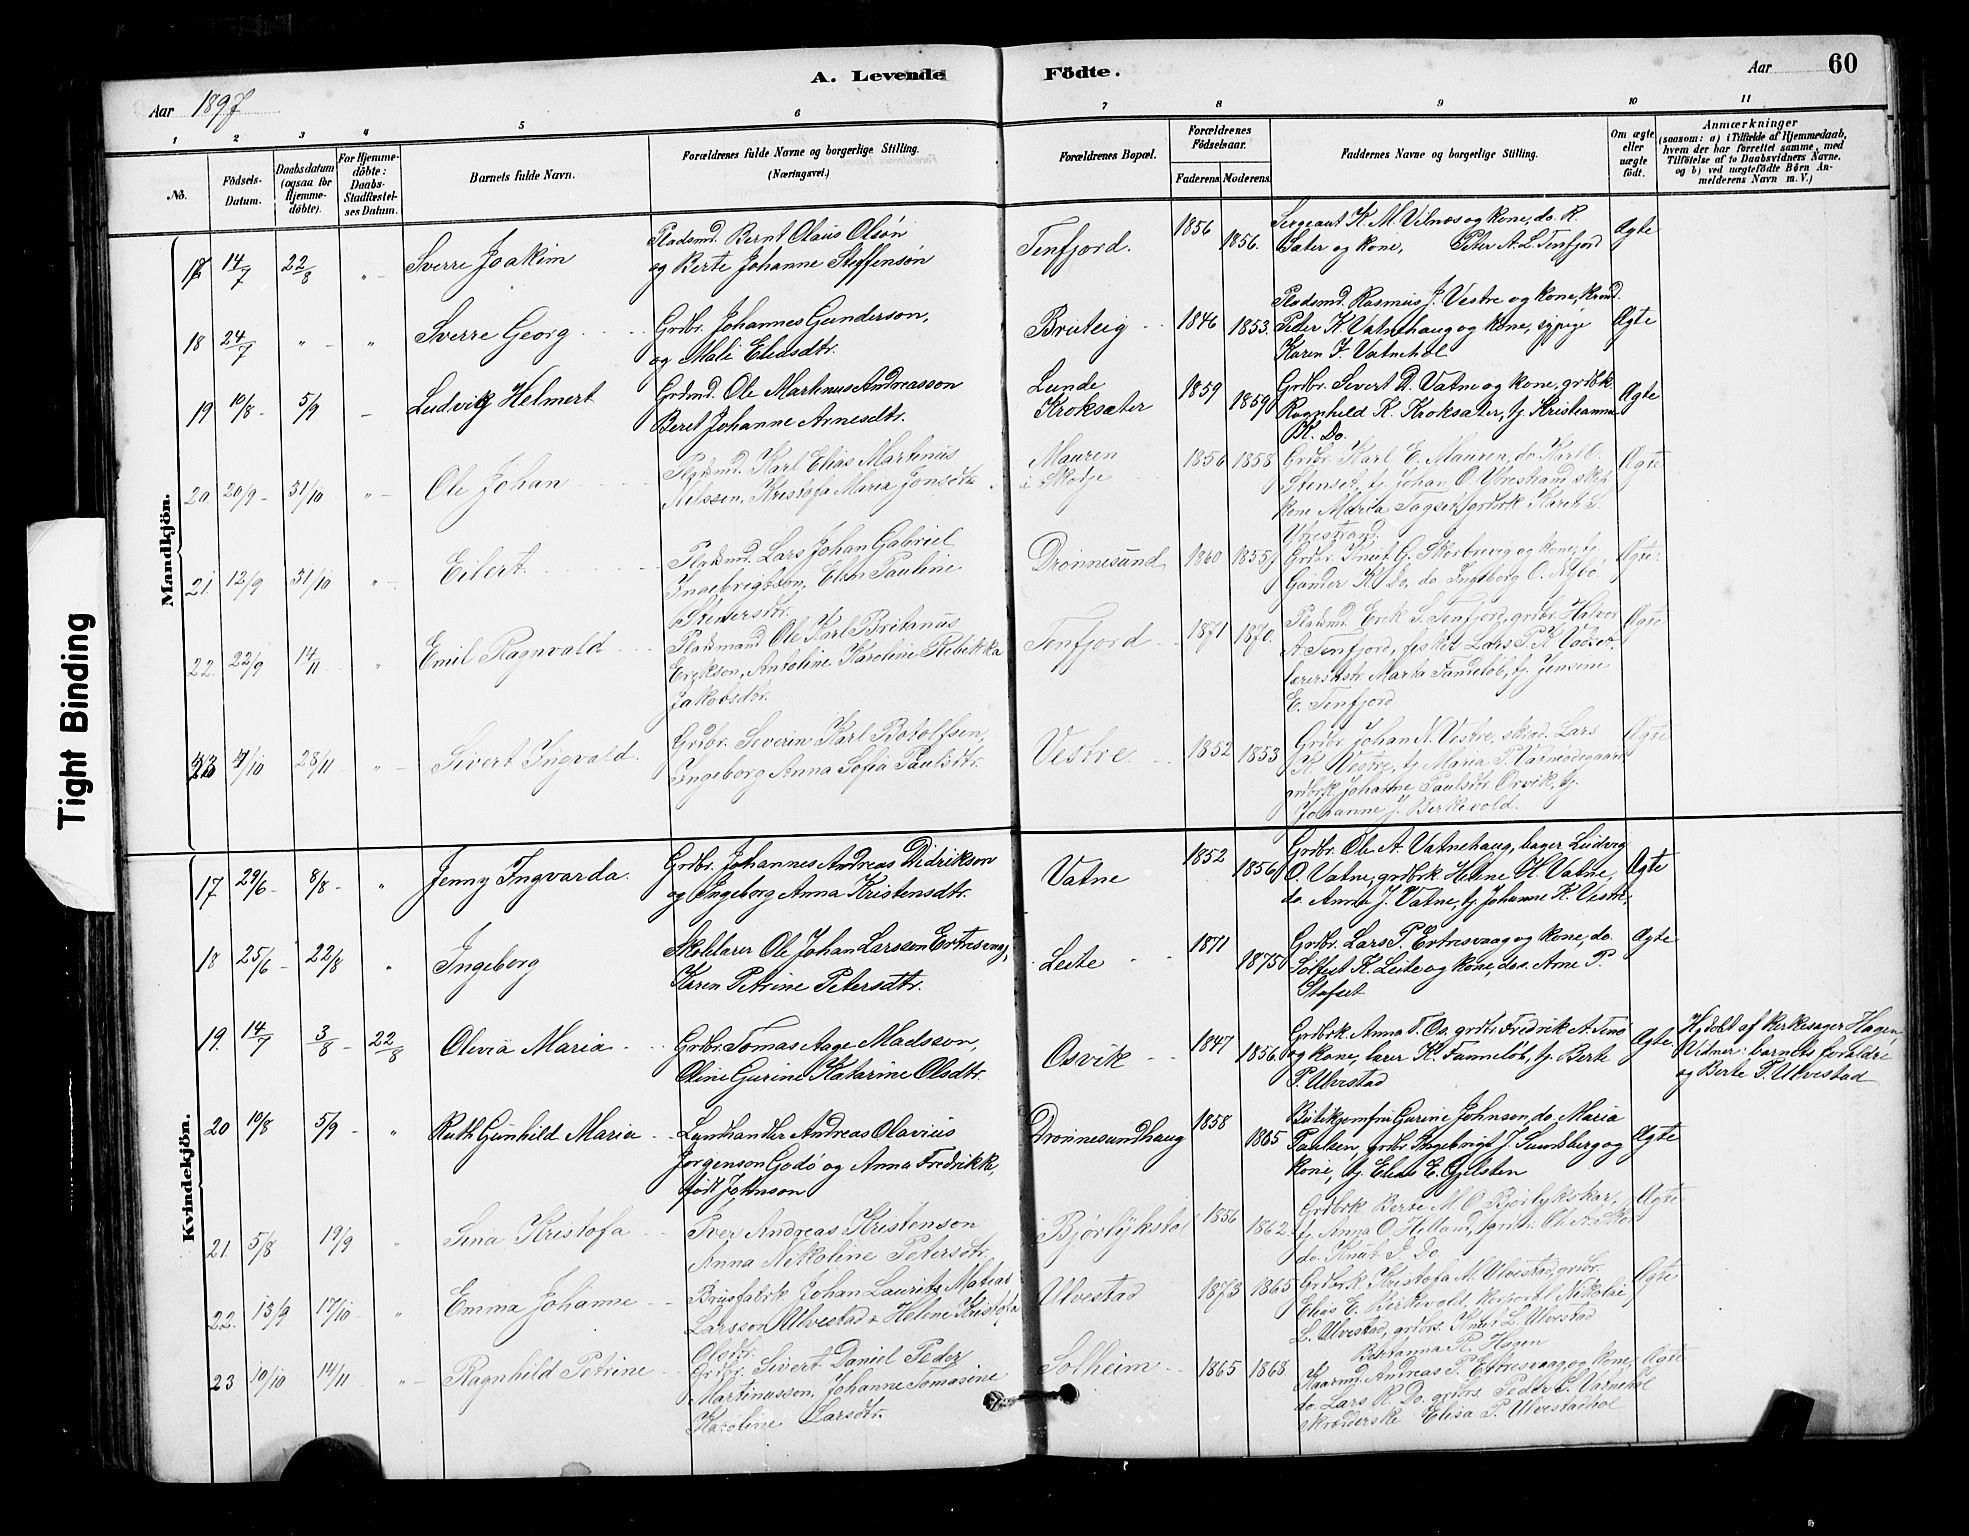 A. Levende Födte.
Aar 1897
Aar 60
1 2 3 4 5 6 7 8 9 10 11
No.
Födsels-Datum.
Daabsdatum (ogsaa for Hjemme-döbte).
For Hjemme-döbte: Daabs-Stadfæstel-ses Datum.
Barnets fulde Navn.
Forældrenes fulde Navne og borgerlige Stilling.
(Næringsvei.)
Forældrenes Bopæl.
Forældrenes Födselsaar.
Faderens. Moderens.
Faddernes Navne og borgerlige Stilling.
Om ægte eller uægte födt.
Anmærkninger
(saasom: a) i Tilfælde af Hjemmedaab,
hvem der har forrettet samme, med
Tilföielse af to Daabsvidners Navne,
og b) ved uægtefödte Börn An-
melderens Navn m. V.)
Mandkjön.
14/7 22/8 " Sverre Joakim
Pladsmd. Bernt Olaus Olsøn
og Berte Johanne Steffensøn
Tenfjord. 1856 1856.
Sergeant K. M. Vilnæs og kone, do. R.
Sater og kone, Peter A. L. Tenfjord
Ægte
18 24/7 " " Sverre Georg
Grdbr. Johannes Gunderson,
og Mali Eliasdtr.
Bruteig 1846 1853.
Pladsmd. Rasmus J. Vestre og kone,
Peder K. Vatnehaug og kone, sypige
Karen J. Vatnehol
Ægte
19 10/8 5/9 Ludvig Helmert
Grdmd. Ole Martinus Andreasson
Beret Johanne Arnesdtr.
Lunde
Kroksæter
1859 1859
Grdbr. Sivert D. Vatne og kone, grdbk.
Ragnhild K. Kroksæter, tj. Kristianna
K. Do.
Ægte
20 20/9 31/10 " Ole Johan
Pladsmd. Karl Elias Martinus
Nilssen, Kristofa Maria Jonsdtr.
Mauren
i Skodje
1856 1858
Grdbr. Karl E. Mauren, do. Karl O.
Stenset, tj. Johan O. Ytrestrand,
kone Maria Fagset, grdbrk Karen S.
Ytrestrand.
Ægte
21. 12/9 31/10 " Eilert
Pladsmd. Lars Johan Gabriel
Ingebrigtson, Elen Pauline
Stenersdtr.
Drønnesund 1860 1855
Grdbr. Knut G. Skorbrevig og kone, tj.
Gunder K. Do. do Ingeborg O. Nybø.
Ægte.
22. 22/9 14/11 " Emil Ragnvald
Pladsmand Ole Karl Britanus
Erikson, Antoline Karoline Rebekka
Jakobsdtr.
Tenfjord 1871 1870.
Pladsmd. Erik S. Tenfjord, grdbr. Halvor
A. Tenfjord, fisker Lars P. K. Vadset,
Marta Fanneløb, tj. Jensine
E. Tenfjord
Ægte
23 4/10 28/11 " Sivert Ingvald.
Grdbr. Severin Karl Botolfsen,
Ingeborg Anna Sofia Paulsdtr.
Vestre. 1852 1853
Grdbr. Johan N. Vestre, skræd. Lars
K. Vestre, tj. Maria P. Vatneødegaard
grdbrk. Johanne Paulsdtr. Orvik, tj.
Johanne J. Birkevold.
Ægte
Kvindekjön.
17 29/6 8/8 " Jenny Ingvarda.
Grdbr. Johannes Andreas Didrikson
og Ingeborg Anna Kristensdtr.
Vatne 1852 1856
Grdbr. Ole A. Vatnehaug, bager Ludvig
O. Vatne, grdbrk. Heline H. Vatne,
do. Anna J. Vatne, tj. Johanne K. Vestre,
Ægte
18 25/6 22/8 " Ingeborg
Skolelærer Ole Johan Larssen Ertresvaag,
Karen Petrine Petersdtr.
Leite 1871 1875
Grdbr. Lars P. Ertresvaag og kone, do.
Solfest K. Leite og kone, do. Arne P.
Stafset
Ægte
19. 14/7 3/8 22/8 Olivia Maria
Grdbr. Tomas Aage Madsson,
Oline Gurine Katarine Olsdtr.
Osvik 1847 1856
Grdbrk. Anna T. Os, grdbr. Fredrik A.
og kone, lærer K. Fanneløb, tj. Berte
P. Ulvestad
Ægte
Hjdøbt af kirkesager Hagen,
Vidner: barnets forældre
og Berte P. Ulvestad
20 10/8 5/9 " Ruth Gunhild Maria
Landhandler Andreas Olavius
Jørgenson Godø og Anna Fredrikk,
født Johnson
Drønnesundhaug 1858 1865
Butikjomfru Gurine Johnson, do. Maria
Paulsen, grdbr. Ingebrigt J. Sundsberg og
kone, tj. Elias E. Gjelsten
Ægte
21. 5/8 19/9 " Sina Kristofa
Iver Andreas Kristenson
Anna Nikoline Petersdtr.
Bjørlykstol 1856 1862
Grdbrk. Berte M. O. Bjørlykskar,
tj. Anna O. Helland,
do. Knut I. Do.
Ægte
22. 13/9 17/10 " Emma Johanne
Brusfabrk Johan Lauritz Matias
Larsson Ulvestad & Helene Kristofa
Olsdtr.
Ulvestad 1873 1865
Grdbrk Kristofa M. Ulvestad, grdbr.
Elias E. Birkevold, korporal Nikolai
L. Ulvestad, grdbrs. Knut L. Ulvestad
Bertanna R. Hagen
Ægte
23 10/10 14/11 " Ragnhild Petrine
Grdbr. Sivert Daniel Peder
Martinusson, Johanne Tomasine
Karoline Larsdtr.
Solheim 1865 1868
Kaarmd. Andreas P. Ertresvaag og kone,
do. Lars R. Do. grdbrs Peder P. Vatnehol
skrædderske Elisa P. Ulvestadhol
Ægte
Tight Binding